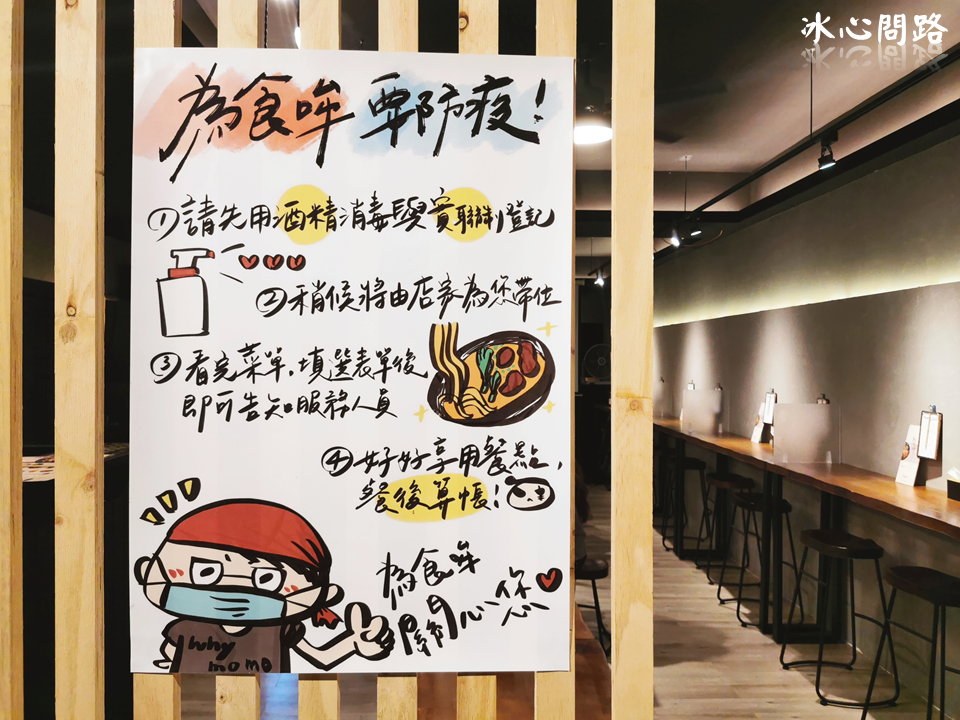 冰心問路
為食哞 要防疫!
①請先用酒精消毒與實聯制登記
②稍候將由店家為您帶位
③看完菜單,填選表單後
即可告知服務人員
④好好享用餐點,
餐後算帳!
為食哞
關心您
Why
mome